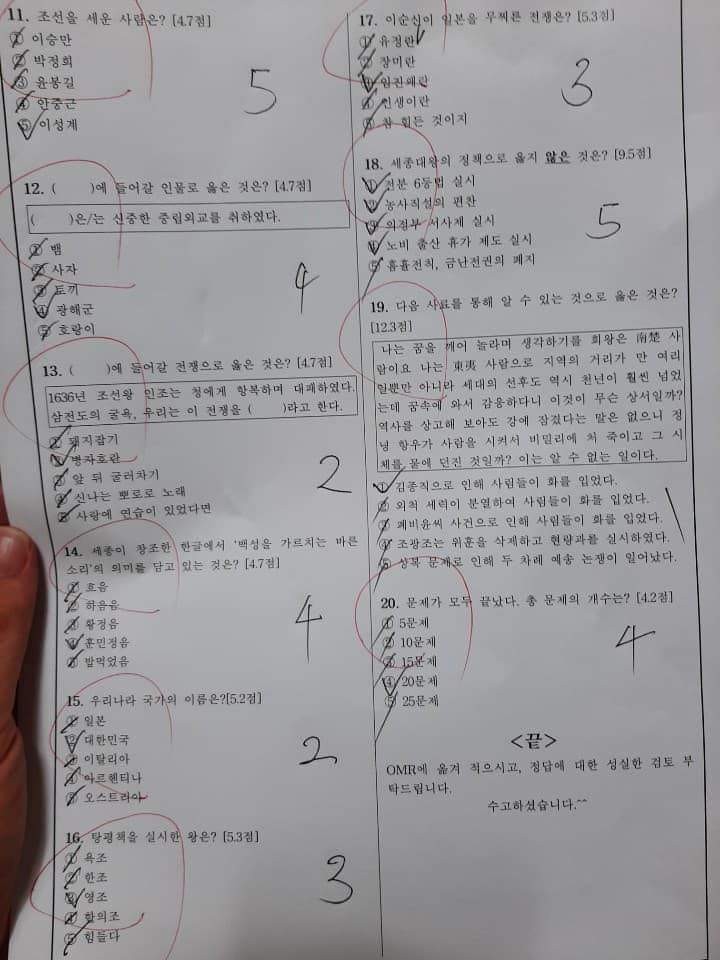 11. 조선을 세운 사람은? [4.7점]
① 이승만
② 박정희
③ 윤봉길
④ 안중근
⑤ 이성계
5
12. ( )에 들어갈 인물로 옳은 것은? [4.7점]
( )은/는 신중한 중립외교를 취하였다.
① 뱀
② 사자
③ 토끼
④ 광해군
⑤ 호랑이
4
13. ( )에 들어갈 전쟁으로 옳은 것은? [4.7점]
1636년 조선왕 인조는 청에게 항복하며 대패하였다.
삼전도의 굴욕, 우리는 이 전쟁을 ( )라고 한다.
① 돼지잡기
② 병자호란
③ 앞 뒤 굴러차기
④ 신나는 뽀로로 노래
⑤ 사랑에 연습이 있었다면
2
14. 세종이 창조한 한글에서 '백성을 가르치는 바른
소리'의 의미를 담고 있는 것은? [4.7점]
① 흐음
② 하음음
③ 황정음
④ 훈민정음
⑤ 밥먹었음
4
15. 우리나라 국가의 이름은?[5.2점]
① 일본
② 대한민국
③ 이탈리아
④ 아르헨티나
⑤ 오스트리아
2
16. 탕평책을 실시한 왕은? [5.3점]
① 욕조
② 한조
③ 영조
④ 합의조
⑤ 힘들다
3
17. 이순신이 일본을 무찌른 전쟁은? [5.3점]
① 유정란
② 장미란
③ 임진왜란
④ 인생이란
⑤ 참 힘든 것이지
3
18. 세종대왕의 정책으로 옳지 않은 것은? [9.5점]
① 전분 6등법 실시
② 농사직설의 편찬
③ 의정부 서사제 실시
④ 노비 출산 휴가 제도 실시
⑤ 흠휼전칙, 금난전권의 폐지
5
19. 다음 사료를 통해 알 수 있는 것으로 옳은 것은?
[12.3점]
나는 꿈을 깨어 놀라며 생각하기를 회왕은 南楚 사
람이요 나는 東夷 사람으로 지역의 거리가 만 여리
일뿐만 아니라 세대의 선후도 역시 천년이 훨씬 넘었
는데 꿈속에 와서 감응하다니 이것이 무슨 상서일까?
역사를 상고해 보아도 강에 잠겼다는 말은 없으니 정
녕 항우가 사람을 시켜서 비밀리에 쳐 죽이고 그 시
체를 물에 던진 것일까? 이는 알 수 없는 일이다.
① 김종직으로 인해 사림들이 화를 입었다.
② 외척 세력이 분열하여 사림들이 화를 입었다.
③ 폐비윤씨 사건으로 인해 사림들이 화를 입었다.
④ 조광조는 위훈을 삭제하고 현량과를 실시하였다.
⑤ 상복 문제로 인해 두 차례 예송 논쟁이 일어났다.
1
20. 문제가 모두 끝났다. 총 문제의 개수는? [4.2점]
① 5문제
② 10문제
③ 15문제
④ 20문제
⑤ 25문제
4
<끝>
OMR에 옮겨 적으시고, 정답에 대한 성실한 검토 부
탁드립니다.
수고하셨습니다.^^